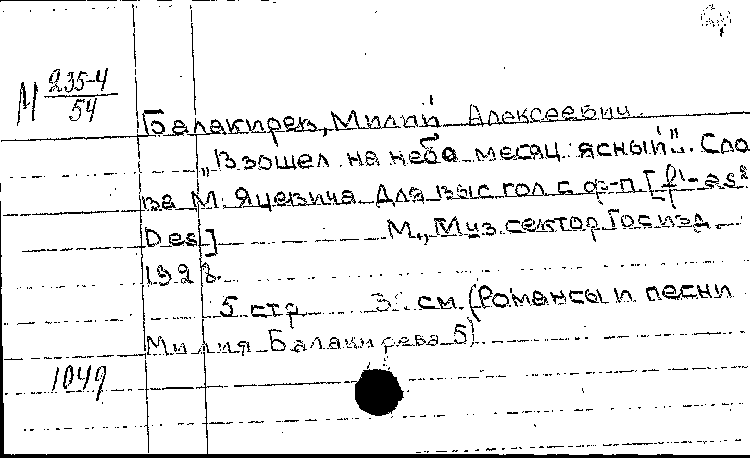 М 235-4
54
Балакирев, Милий Алексеевич.
„Взошел на небо месяц ясный". Сло
ва М. Яцевича. Для выс гол с ф-п. [f¹-as²
Des]
М., Муз. сектор Госизд.
192
5 стр см. (Романсы и песни
Милия Балакирева 5)
1049